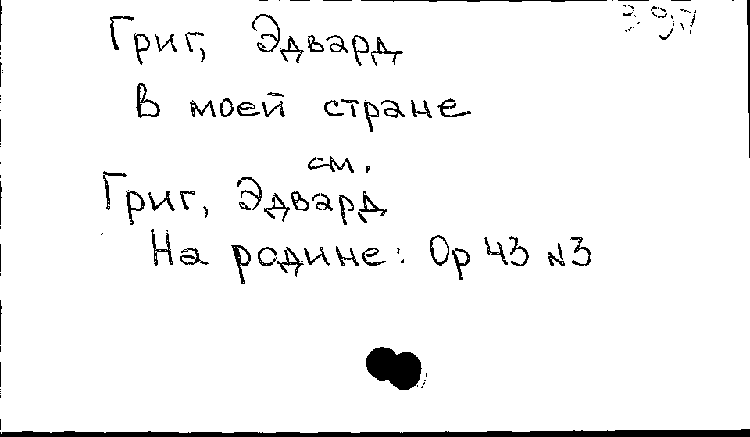 397
Григ, Эдвард
В моей стране
см.
Григ, Эдвард
На родине: Op 43 N3